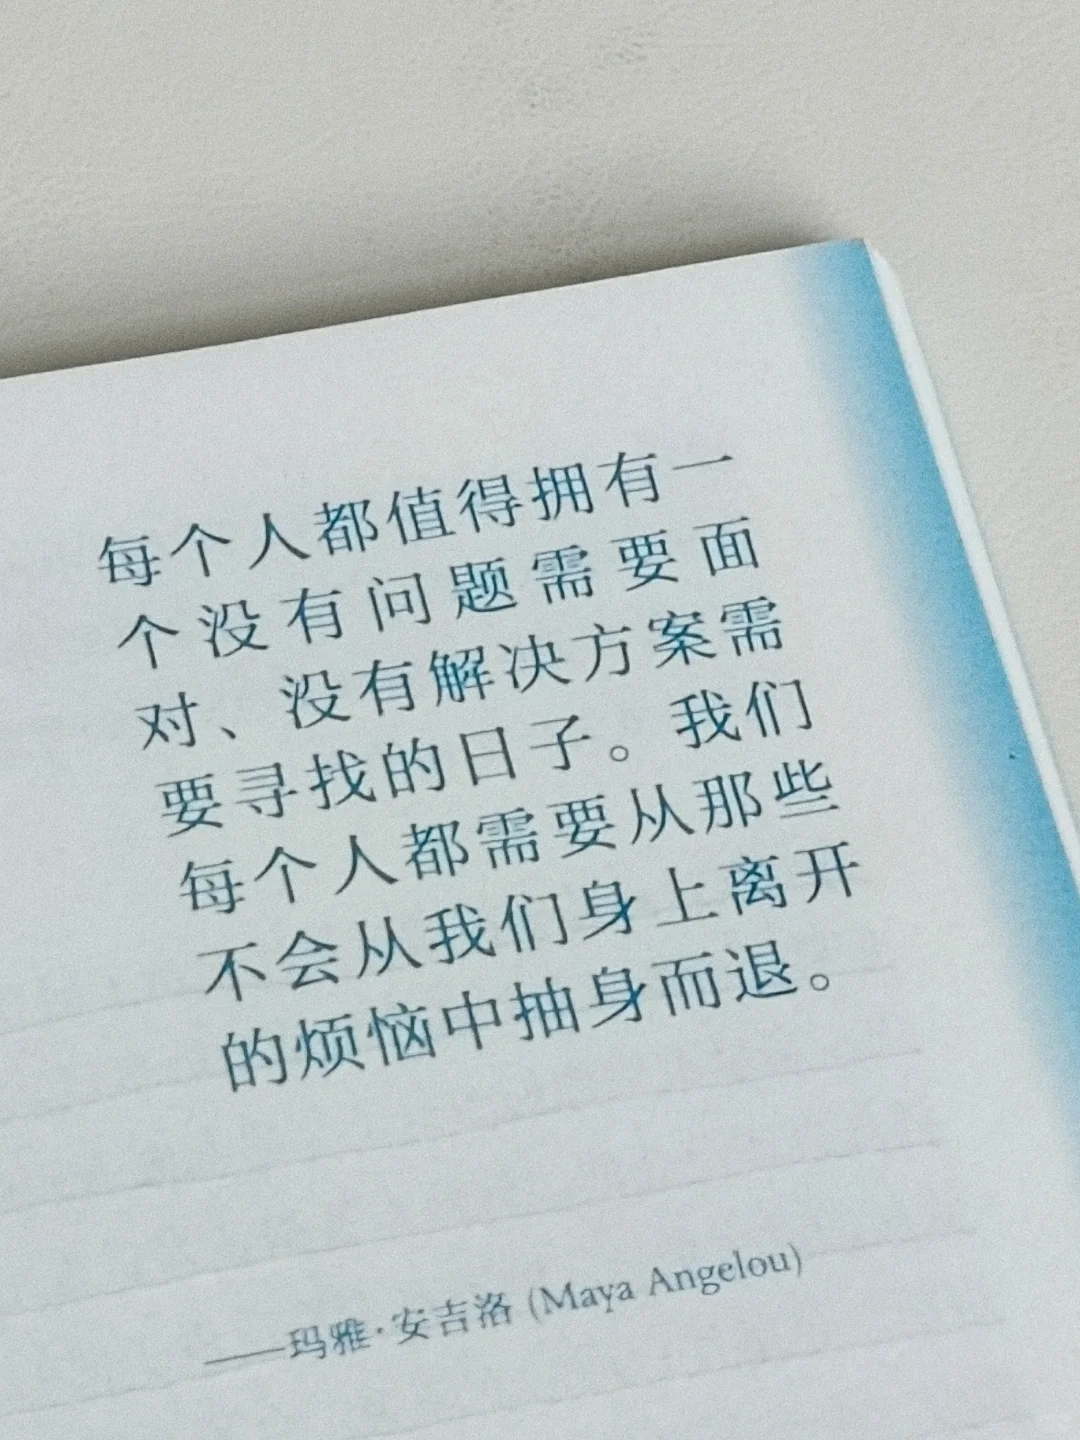 每个人都值得拥有一
个没有问题需要面
对、没有解决方案需
要寻找的日子。我们
每个人都需要从那些
不会从我们身上离开
的烦恼中抽身而退。
——玛雅·安吉洛 (Maya Angelou)